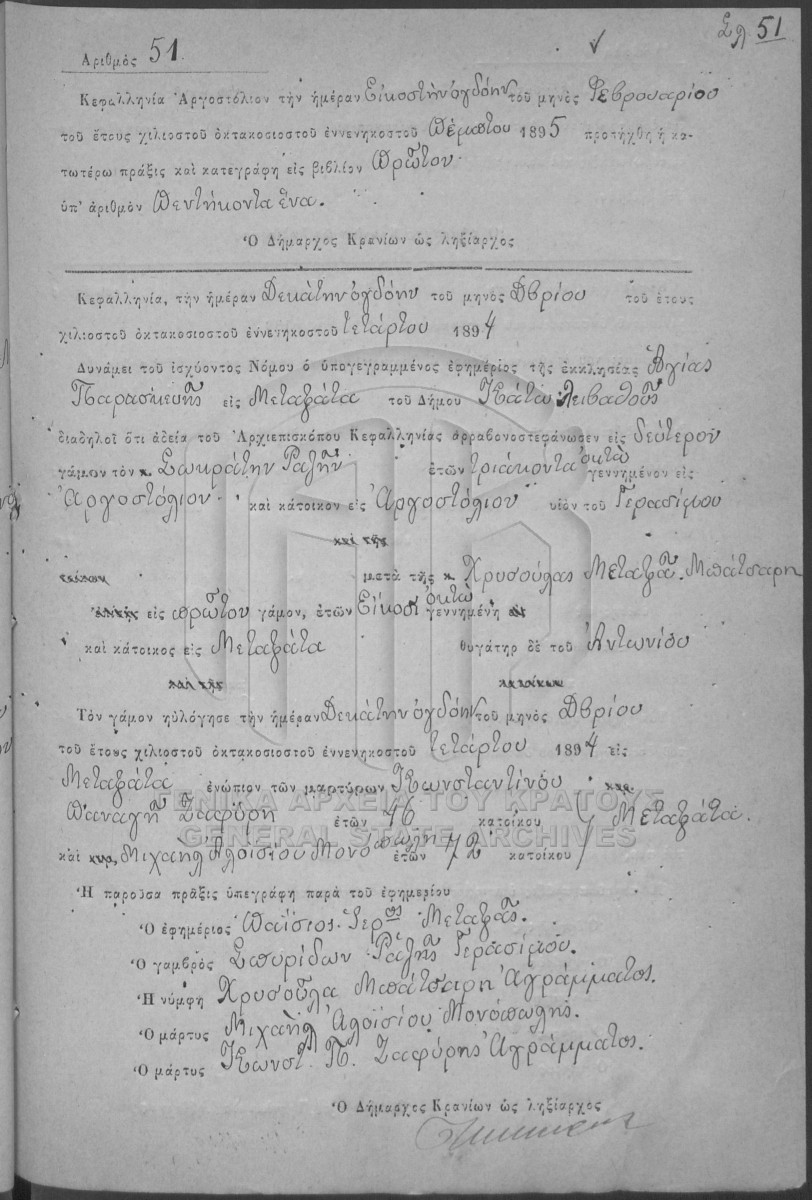 Σλ 51
Ἀριθμὸς 51
Κεφαλληνία Ἀργοστόλιον τὴν ἡμέραν Εἰκοστὴν ὀγδόην τοῦ μηνὸς Φεβρουαρίου
τοῦ ἔτους χιλιοστοῦ ὀκτακοσιοστοῦ ἐννενηκοστοῦ Πέμπτου 1895 προτήχθη ἡ κα-
τωτέρω πράξις καὶ κατεγράφη εἰς βιβλίον Πρῶτον
ὑπ' ἀριθμὸν Πεντήκοντα ἕνα.
Ὁ Δήμαρχος Κρανίων ὡς ληξίαρχος
Κεφαλληνία, τὴν ἡμέραν Δεκάτην ὀγδόην τοῦ μηνὸς Δβρίου τοῦ ἔτους
χιλιοστοῦ ὀκτακοσιοστοῦ ἐννενηκοστοῦ τετάρτου 1894
Δυνάμει τοῦ ἰσχύοντος Νόμου ὁ ὑπογεγραμμένος ἐφημέριος τῆς ἐκκλησίας Ἁγίας
Παρασκευῆς εἰς Μεταξάτα τοῦ Δήμου Κάτω Λειβαθοῦς
διαδηλοῖ ὅτι ἀδεία τοῦ Ἀρχιεπισκόπου Κεφαλληνίας ἀρραβονοστεφάνωσεν εἰς δεύτερον
γάμον τὸν κ. Σωκράτην Ραζῆν ἐτῶν τριάκοντα ὀκτὼ γεννημένον εἰς
Ἀργοστόλιον καὶ κάτοικον εἰς Ἀργοστόλιον υἱὸν τοῦ Γερασίμου
καὶ τῆς
μετὰ τῆς κ. Χρυσούλας Μεταξᾶ Μπάτσαρη
εἰς πρῶτον γάμον, ἐτῶν Εἴκοσι ὀκτὼ γεννημένη
καὶ κάτοικος εἰς Μεταξάτα θυγάτηρ δὲ τοῦ Ἀντωνίου
καὶ τῆς κατοίκων
Τὸν γάμον ηὐλόγησε τὴν ἡμέραν Δεκάτην ὀγδόην τοῦ μηνὸς Δβρίου
τοῦ ἔτους χιλιοστοῦ ὀκτακοσιοστοῦ ἐννενηκοστοῦ τετάρτου 1894 εἰς
Μεταξάτα ἐνώπιον τῶν μαρτύρων Κωνσταντίνου καὶ
Παναγῆ Ζαφύρη ἐτῶν 46 κατοίκου Μεταξάτα.
ΓΕΝΙΚΑ ΑΡΧΕΙΑ ΤΟΥ ΚΡΑΤΟΥΣ
GENERAL STATE ARCHIVES
καὶ κυρ. Μιχαὴλ Ἀλοϊσίου Μονόπωλη ἐτῶν 42 κατοίκου
Ἡ παροῦσα πρᾶξις ὑπεγράφη παρὰ τοῦ ἐφημερίου
Ὁ ἐφημέριος Παΐσιος Ἱερος Μεταξᾶς.
Ὁ γαμβρὸς Σπυρίδων Ραζῆς Γερασίμου.
Ἡ νύμφη Χρυσοῦλα Μπάτσαρη Ἀγράμματος.
Ὁ μάρτυς Μιχαὴλ Ἀλοϊσίου Μονόπωλης.
Ὁ μάρτυς Κωνστ. Π. Ζαφύρης Ἀγράμματος.
Ὁ Δήμαρχος Κρανίων ὡς ληξίαρχος